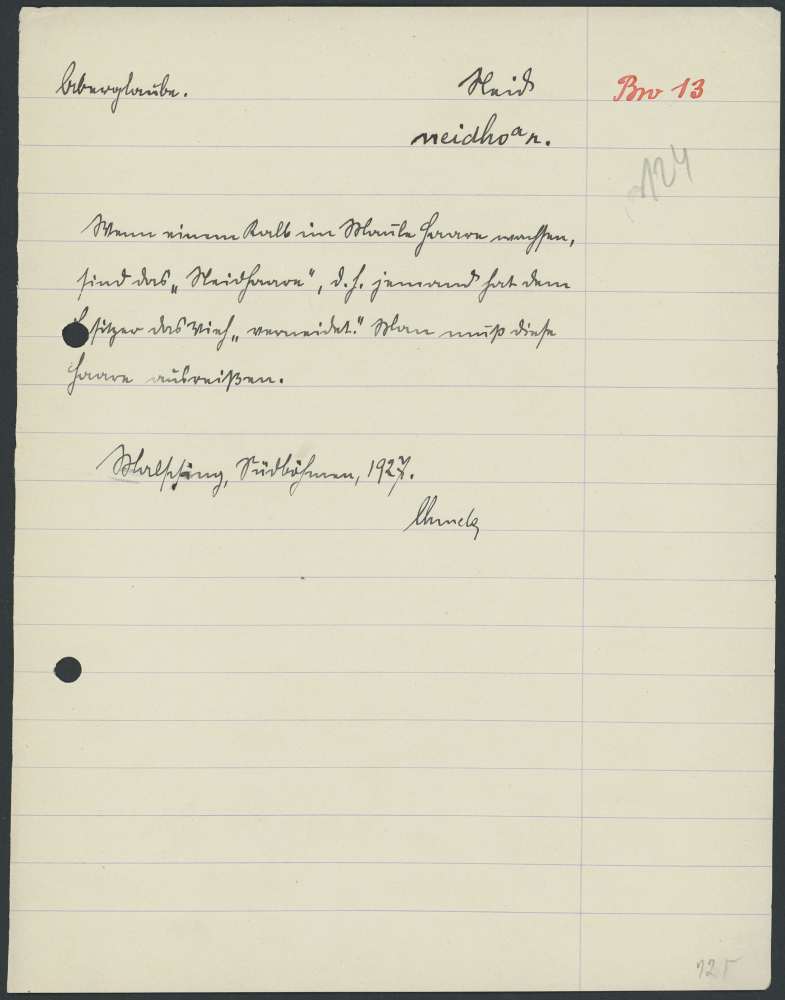 Aberglaube.
Neid
Bro 13
neidhoᵃn.
124
Wenn einem Kalb im Maule Haare wachsen,
sind das „Neidhaare", d. h. jemand hat dem
Besitzer das Vieh „verneidet." Man muß diese
Haare ausreißen.
Malsching, Südböhmen, 1927.
125